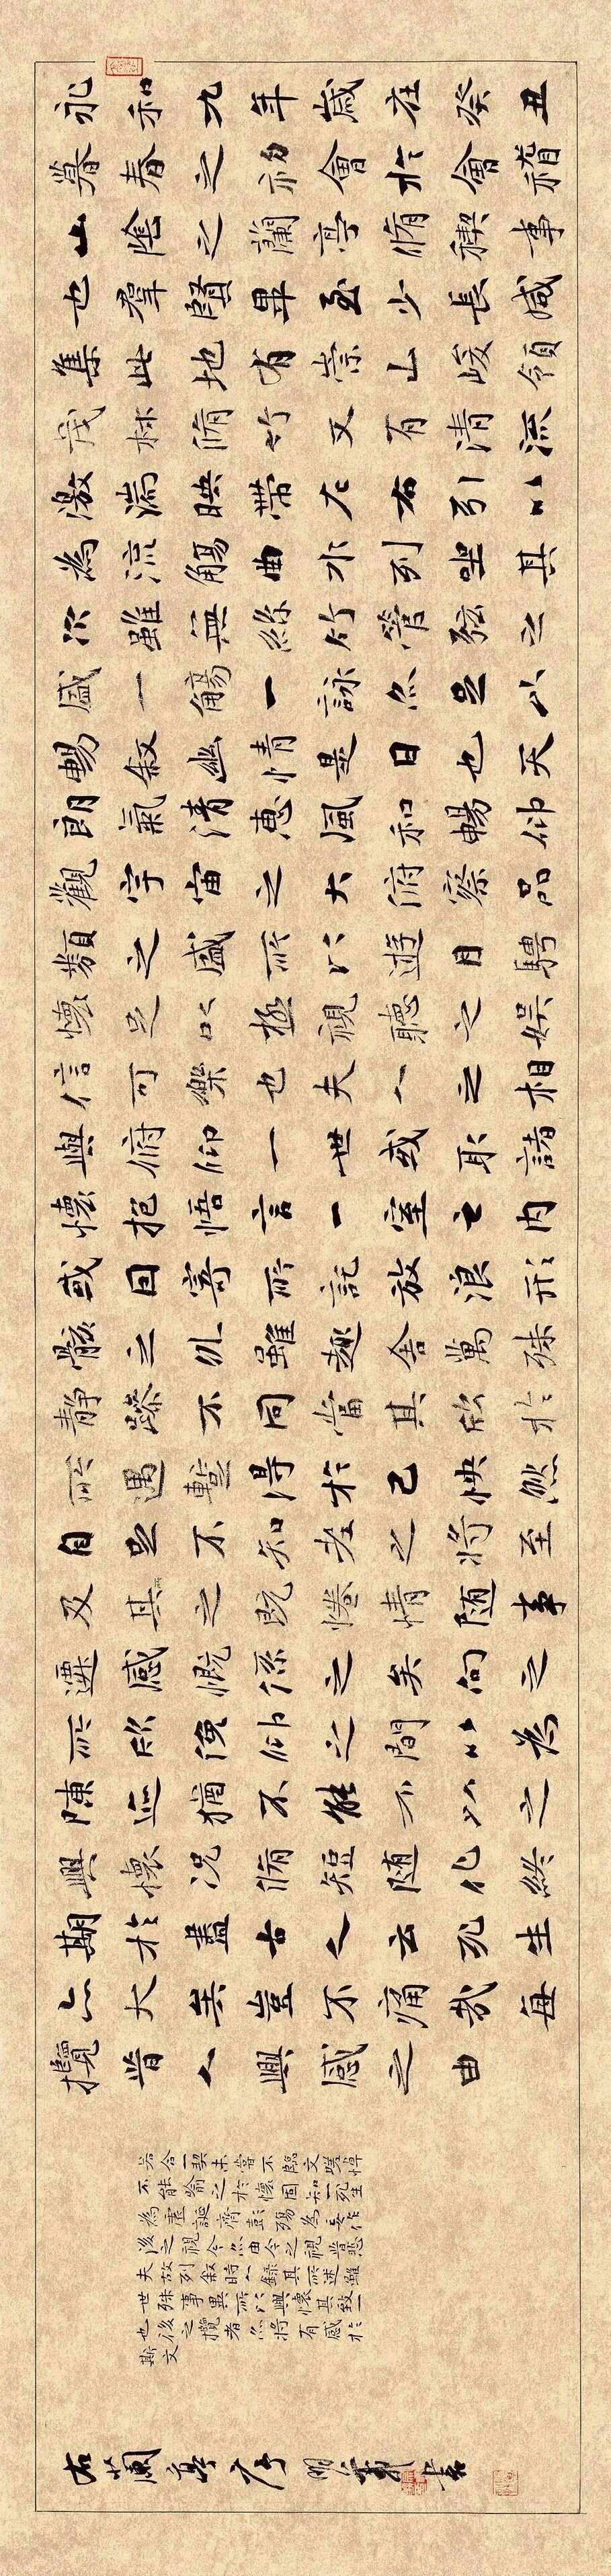 永和九年歲在癸丑
暮春之初會於會稽
山陰之蘭亭脩禊事
也羣賢畢至少長咸
集此地有崇山峻領
茂林脩竹又有清流
激湍暎帶左右引以
為流觴曲水列坐其
次雖無絲竹管弦之
盛一觴一詠亦足以
暢敘幽情是日也天
朗氣清惠風和暢仰
觀宇宙之大俯察品
類之盛所以遊目騁
懷足以極視聽之娛
信可樂也夫人之相
與俯仰一世或取諸
懷抱悟言一室之內
或因寄所託放浪形
骸之外雖趣舍萬殊
靜躁不同當其欣於
所遇暫得於己怏然
自足不知老之將至
及其之既惓情随事
遷感慨係之矣向之
所欣俛仰之間以為
陳迹猶不能不以之
興懷況脩短随化終
期於盡古人云死生
亦大矣豈不痛哉每
攬昔人興感之由
若合一契未嘗不臨文嗟悼
不能喻之於懷固知一死生
為虛誕齊彭殤為妄作
後之視今亦由今之視昔悲
夫故列敘時人錄其所述雖
世殊事異所以興懷其致一
也後之攬者亦將有感於
斯文
右蘭亭序 明 書